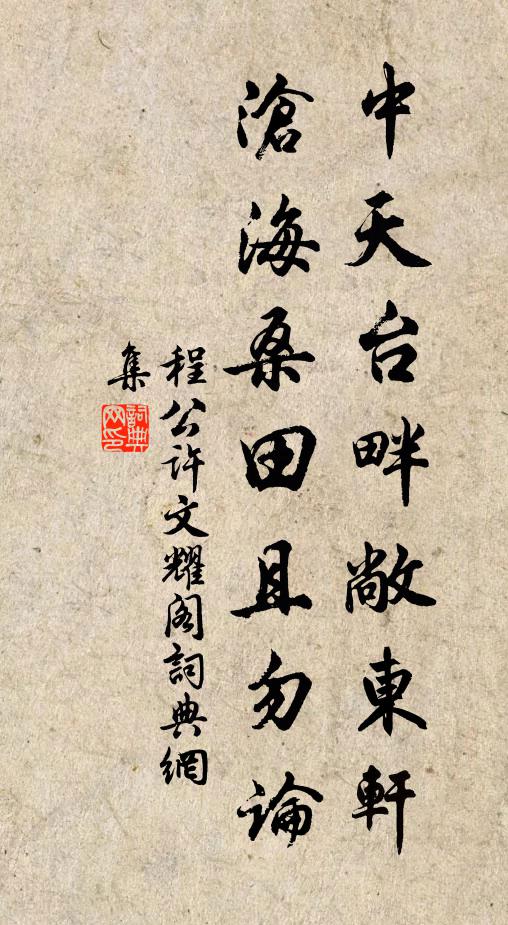 中天台畔敞東軒
滄海桑田且勿論
程公許文耀閣詞典網
集
詞典网印